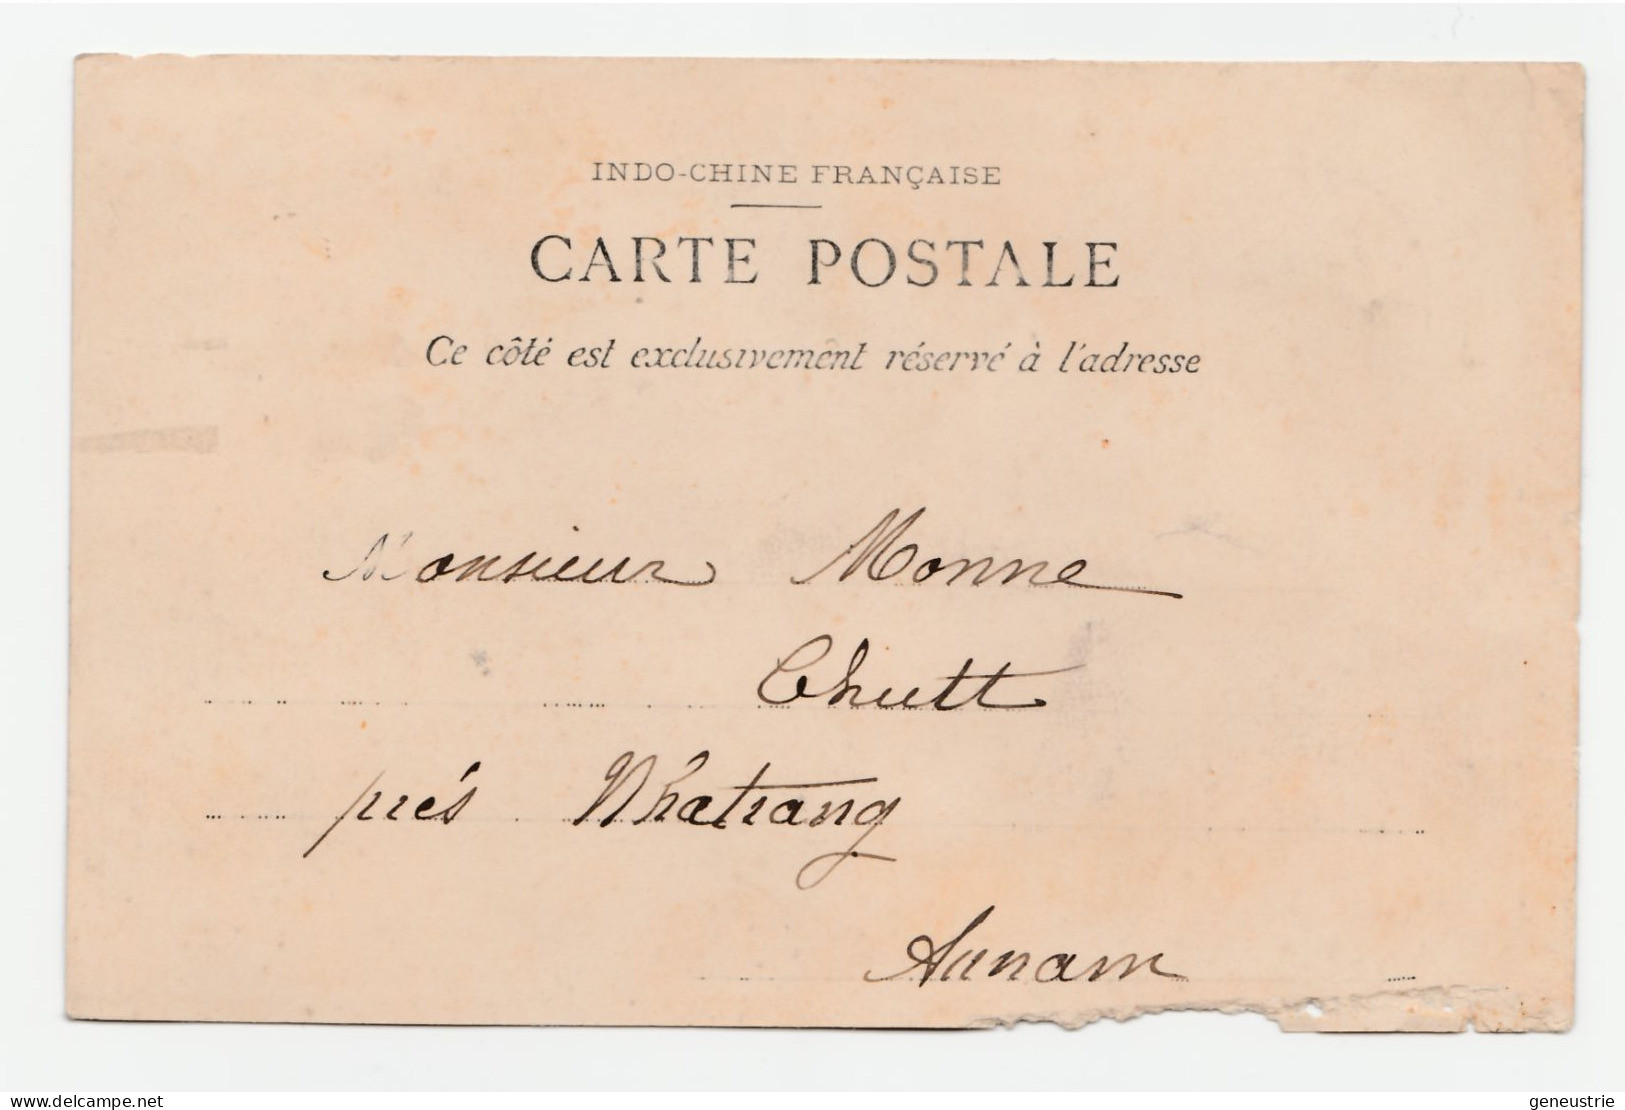 INDO-CHINE FRANÇAISE
CARTE POSTALE
Ce côté est exclusivement réservé à l'adresse
Monsieur Monne
Chutt
prés Nhatrang
Annam
www.delcampe.net
geneustrie